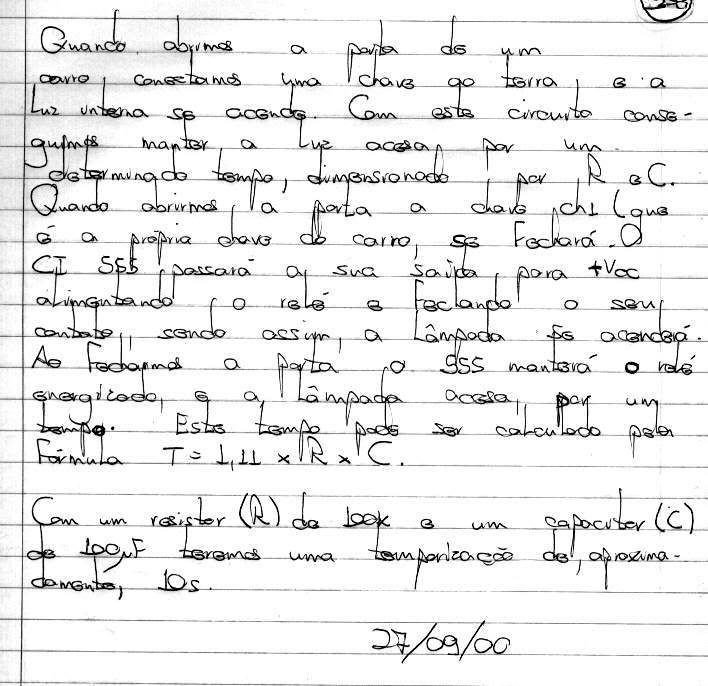 Quando abrimos a porta de um
carro, conectamos uma chave ao terra, e a
Luz interna se acende. Com este circuito conse-
guimos manter a Luz acesa por um
determinado tempo, dimensionado por R e C.
Quando abrirmos a porta a chave ch1 (que
é a própria chave do carro, se Fechará. O
CI 555 passará a sua saída para +Vcc
alimentando o relé e Fechando o seu
contato, sendo assim, a Lâmpada se acenderá.
Ao Fecharmos a porta o 555 manterá o relé
energizado, e a Lâmpada acesa, por um
tempo. Este tempo pode ser calculado pela
Fórmula T = 1,11 x R x C.
Com um resistor (R) de 100K e um capacitor (C)
de 100µF teremos uma temporização de, aproxima-
damente, 10s.
27/09/00